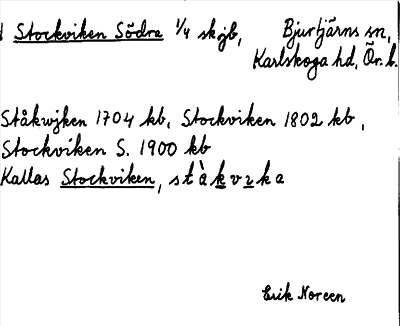 Stockviken Södra 1/4 skjb, Bjurtjärns sn,
Karlskoga hd, Ör. l.
Ståkwjken 1704 kb, Stockviken 1802 kb,
Stockviken S. 1900 kb
Kallas Stockviken,
Erik Noreen